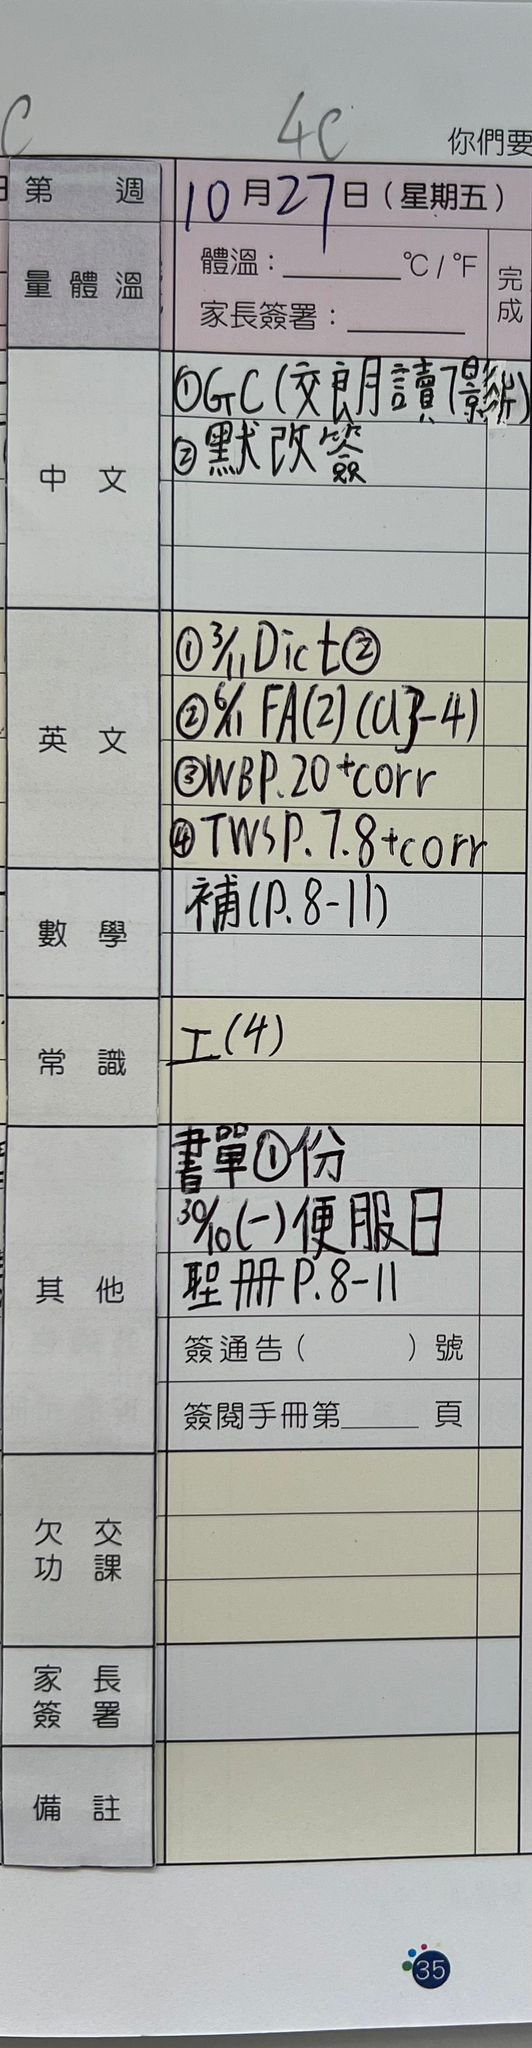 C
4C
你們要
第 週
10月27日(星期五)
量體溫
體溫：______°C / °F
家長簽署：______
完成
中文
①GC(交朗讀7影片)
②默改簽
英文
①3/11 Dict②
②6/11 FA(2)(U3-4)
③WBP.20+corr
④TWSP.7.8+corr
數學
補(P.8-11)
常識
工(4)
其他
書單①份
30/10(一)便服日
聖冊P.8-11
簽通告( )號
簽閱手冊第____頁
欠交功課
家長簽署
備註
35